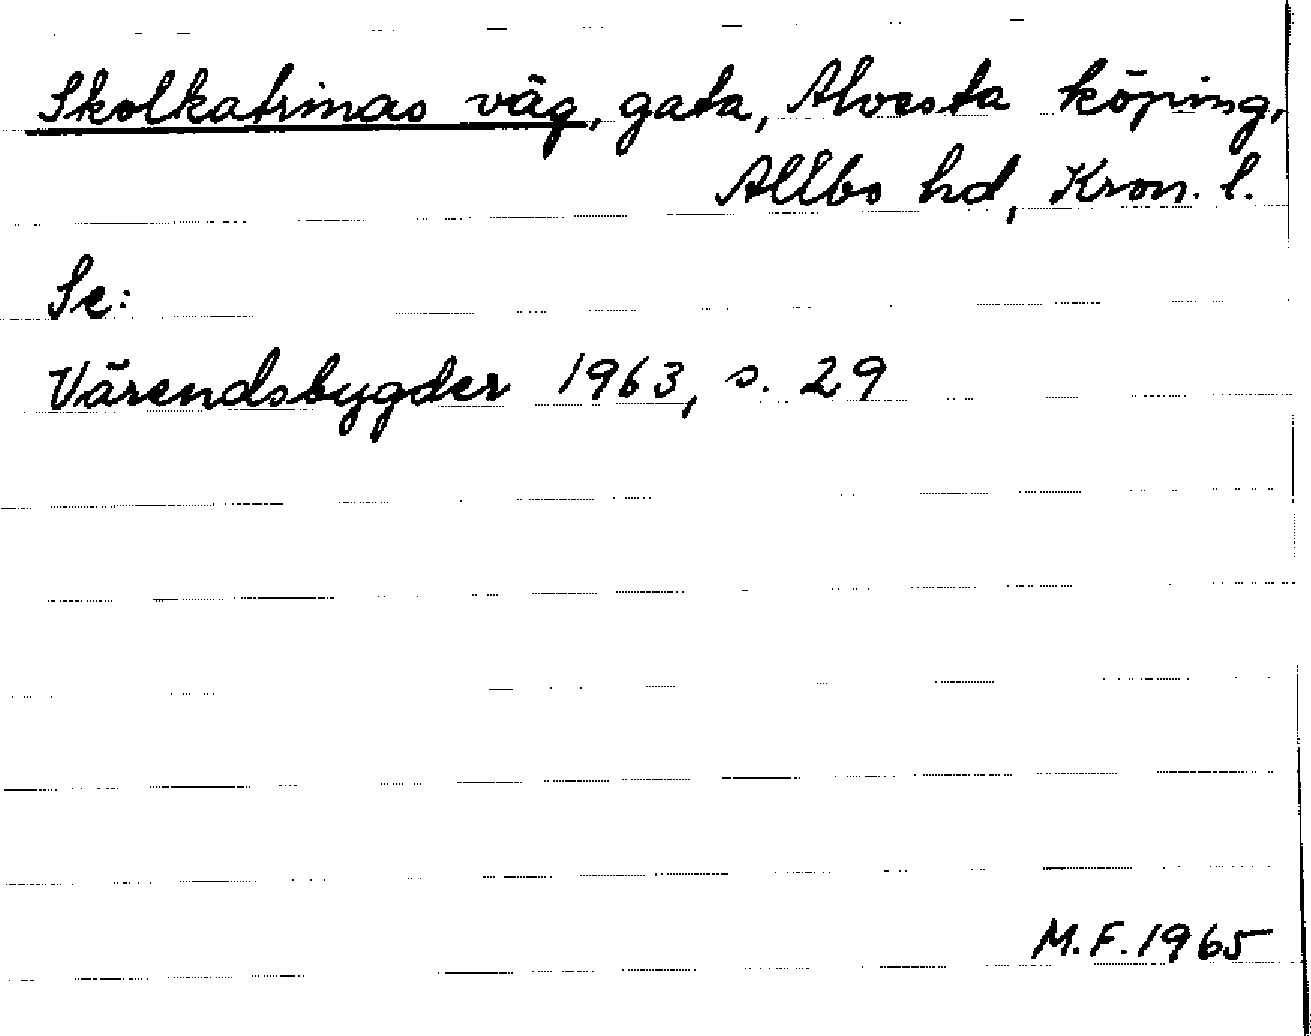 Skolkatrinas väg, gata, Alvesta köping,
Allbo hd, Kron. l.
Se:
Värendsbygder 1963, s. 29
M.F. 1965